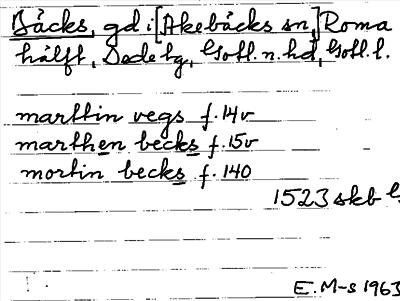 Bäcks, gd i [Akebäcks sn,] Roma
hälft, Dede tg, Gotl. n. hd, Gotl. l.
marttin vegs f. 14v
marthen becks f. 15v
mortin becks f. 140
1523 skb
E. M-s 1963